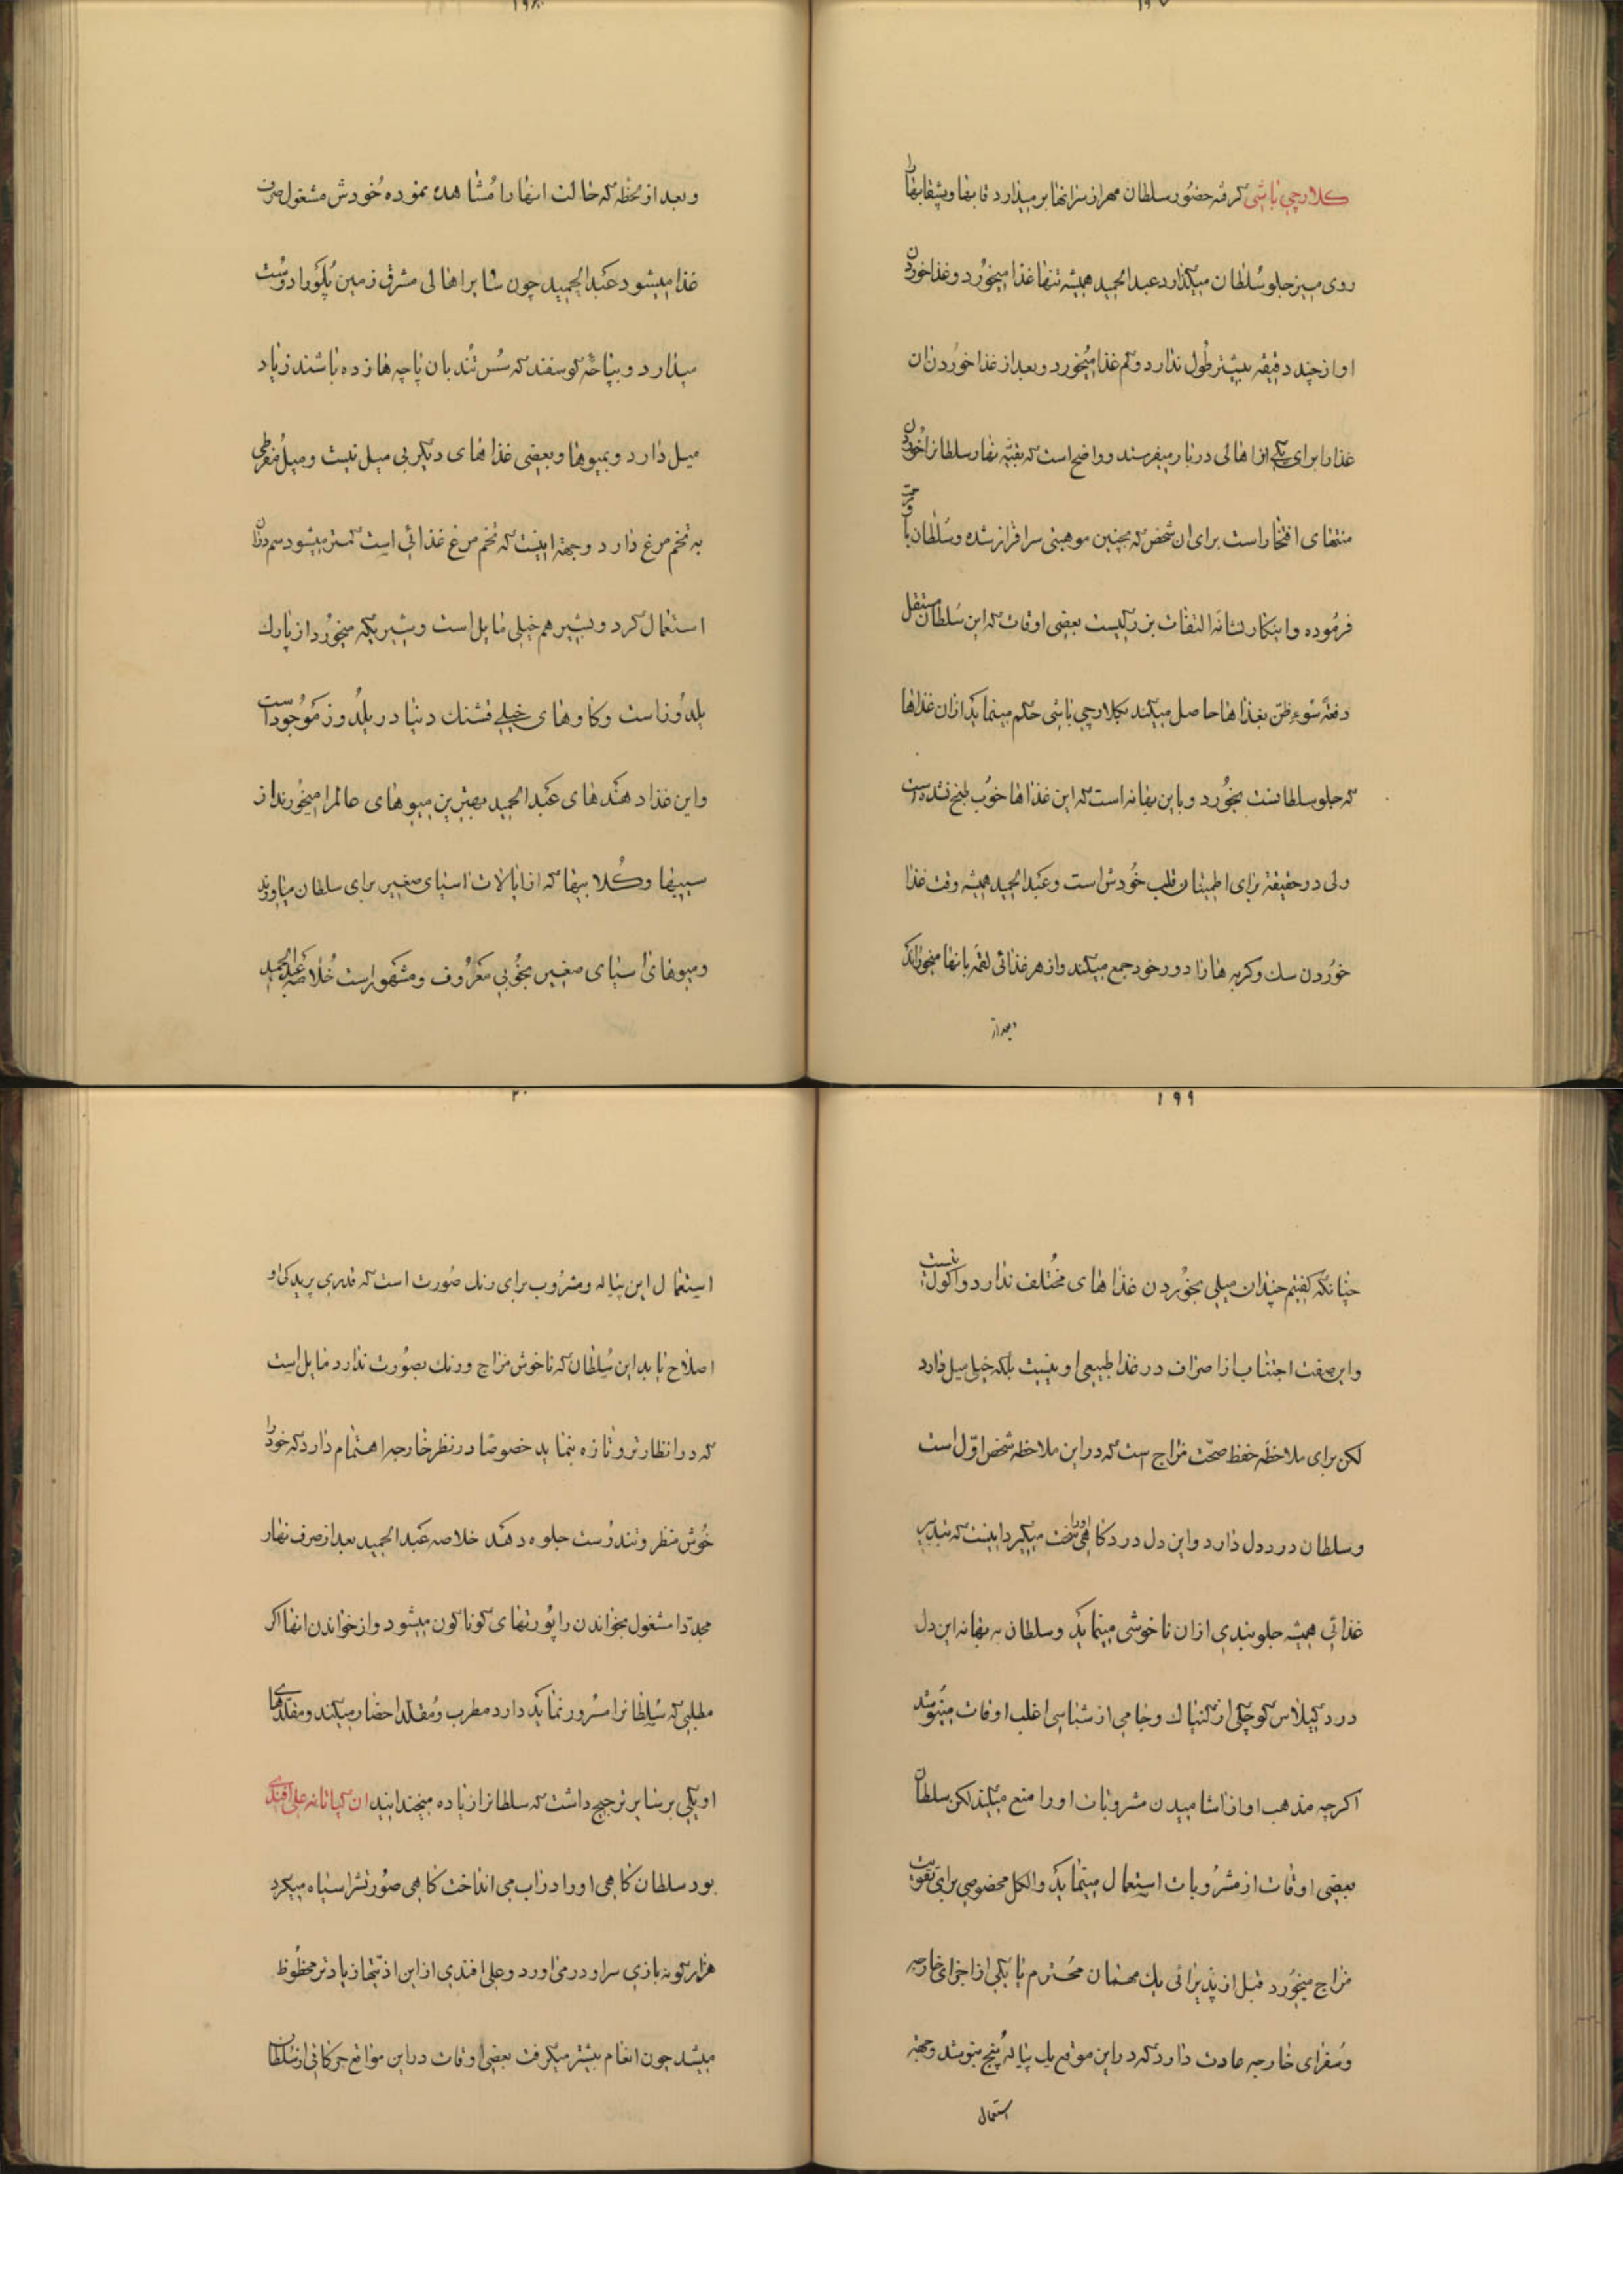 ۱۹۷
کلارچی باشی گرفته حضور سلطان مهر از سر انها بر میدارد قابها و بشقابها را
روی میز جلو سلطان میگذارد عبدالحمید همیشه تنها غذا میخورد و غذا خوردن
او از چند دقیقه بیشتر طول ندارد و کم غذا میخورد و بعد از غذا خوردن ان
غذا را برای یکی از اهالی دربار میفرستد و واضح است که بقیه نهار سلطانرا خوردن
منتهای افتخار است برای ان شخص که بچنین موهبتی سرافراز شده و سلطان با او مرحمت
فرموده و اینکار نشانه التفات بزرگیست بعضی اوقات که این سلطان مستقل
دفعة سوء ظن بغذاها حاصل میکند بکلارچی باشی حکم مینماید از ان غذاها
که جلو سلطانست بخورد و باین بهانه است که این غذاها خوب طبخ نشده است
ولی در حقیقة برای اطمینان قلب خودش است و عبدالحمید همیشه وقت غذا
خوردن سک و کربه ها را دور خود جمع میکند و از هر غذائی لقمه بانها میخوراند
و بعد از
۱۹۸
و بعد از لحظه که حالت انها را مشاهده نموده خودش مشغول صرف
غذا میشود عبدالحمید چون سایر اهالی مشرق زمین پلو را دوست
میدارد و بپاچه کوسفند که سس تند بان پاچه ها زده باشند زیاد
میل دارد و بمیوها و بعضی غذاهای دیگر بی میل نیست و میل مفرطی
به تخم مرغ دارد و جهة اینست که تخم مرغ غذائی است کمتر میشود سم در ان
استعمال کرد و بشیر هم خیلی مایل است و شیریکه میخورد از پارک
یلدوز است و کاوهای خیلی قشنک دنیا در یلدوز موجود است
و این غذا دهندهای عبدالحمید بهترین میوهای عالم را میخورند از
سیبها و کلابیها که از ایالات اسیای صغیر برای سلطان میاورند
و میوهای اسیای صغیر بخوبی معروف و مشهور است خلاصه عبدالحمید
۱۹۹
چنانکه کفتم چندان میلی بخوردن غذاهای مختلف ندارد و اکول نیست
و این صفت اجتناب از اصراف در غذا طبیعی او نیست بلکه خیلی میل دارد
لکن برای ملاحظه حفظ صحّت مزاج است که در این ملاحظه شخص اوّل است
و سلطان درد دل دارد و این دل درد کاهی او را سخت میکیرد اینست که بتدبیر
غذائی همیشه جلوبندی از ان ناخوشی مینماید و سلطان به بهانه این دل
درد کیلاس کوچکی از کنیاک و جامی از شنپاسی اغلب اوقات مینوشد
اکرچه مذهب او از اشامیدن مشروبات او را منع میکند لکن سلطان
بعضی اوقات از مشروبات استعمال مینماید و الکل مخصوصی برای تقویت
مزاج میخورد قبل از پذیرائی یک مهمان محترم یا یکی از اجزای خارجه
و سفرای خارجه عادت دارد که در این موقع یک پیاله پنج بنوشد و جهة
استعمال
۲۰۰
استعمال این پیاله و مشروب برای رنک صورت است که قدری پریدکی او
اصلاح یابد این سلطان که ناخوش مزاج و رنک بصورت ندارد مایل است
که در انظار تر و تازه بنماید خصوصا در نظر خارجه اهتمام دارد که خود را
خوش منظر و تندرست جلوه دهد خلاصه عبدالحمید بعد از صرف نهار
مجددا مشغول بخواندن راپورتهای کوناکون میشود و از خواندن انها اکر
مطلبی که سلطانرا مسرور نماید دارد مطرب و مقلد احضار میکند و مقلدهای
او یکی بر سایر ترجیح داشت که سلطانرا زیاده میخندانید ان علی افندی
بود سلطان کاهی او را در اب می انداخت کاهی صورتشرا سیاه میکرد
هزار کونه بازی سر او در میاورد و علی افندی از این اذیتها زیادتر محظوظ
میشد چون انعام بیشتر میکرفت بعضی اوقات در این مواقع حرکاتی از سلطان